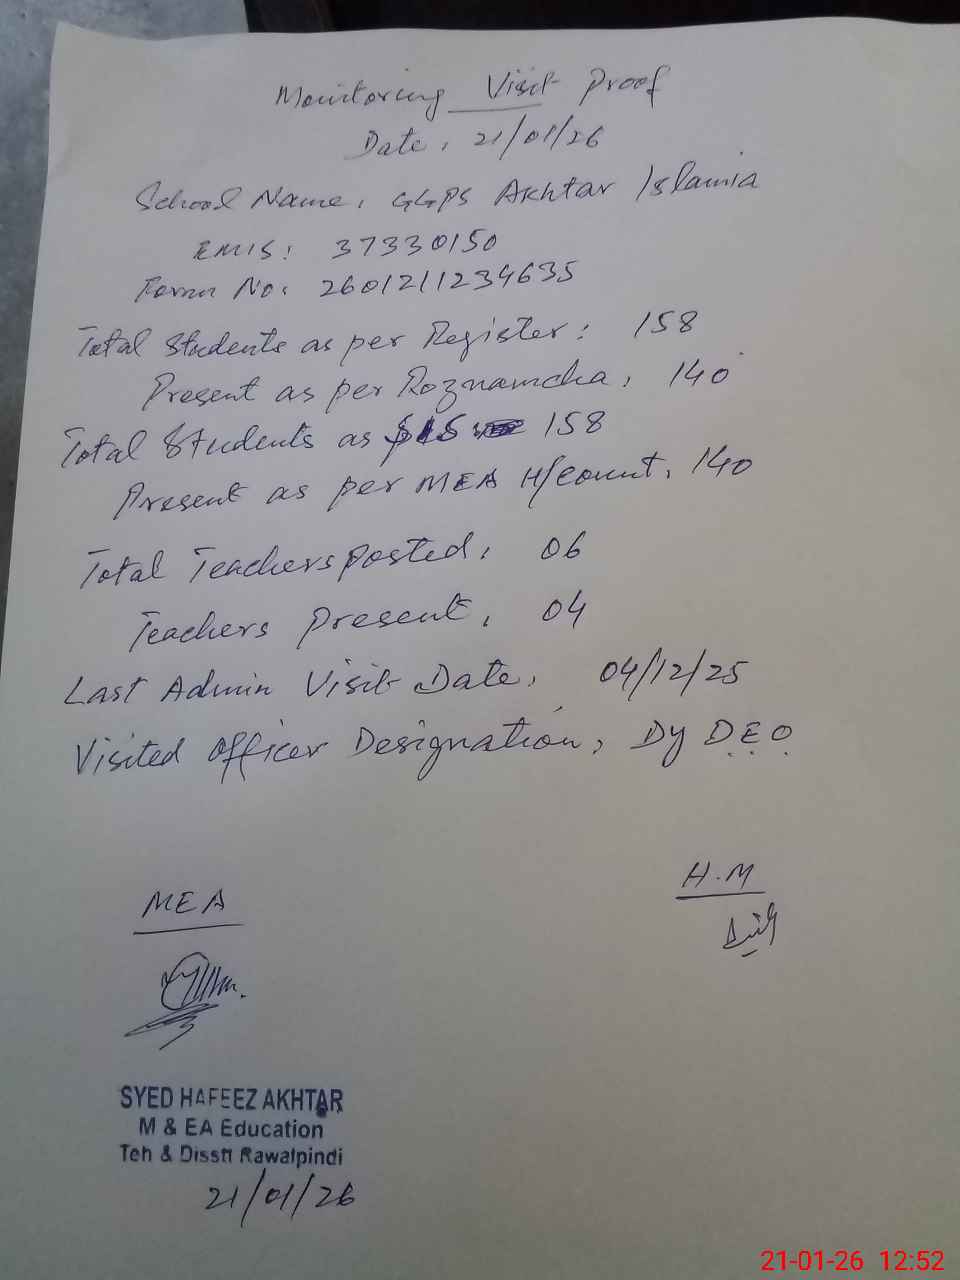 Monitoring Visit Proof
Date, 21/01/26
School Name, GGPS Akhtar Islamia
EMIS: 37330150
Form No. 2601211234635
Total Students as per Register: 158
Present as per Roznamcha, 140
Total Students as SIS 158
Present as per MEA H/count, 140
Total Teachers posted, 06
Teachers Present, 04
Last Admin Visit Date, 04/12/25
Visited Officer Designation, Dy D.E.O.
H.M
MEA
SYED HAFEEZ AKHTAR
M & EA Education
Teh & Disstt Rawalpindi
21/01/26
21-01-26 12:52